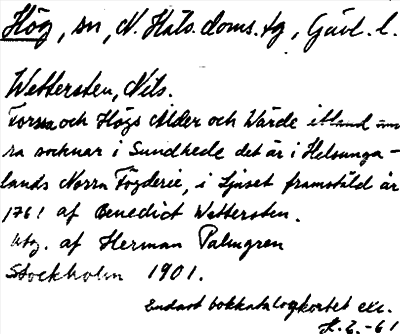 Hög, sn, N. Häls. doms. tg, Gävl. l.
Wettersten, Nils.
Forssa och Högs Ålder och Wärde ibland an
ra socknar i Sundhede det är i Helsinga-
lands Norra Fögderie, i Ljuset framstäld år
1761 af Benedict Wettersten.
utg. af Herman Palmgren
Stockholm 1901.
Endast bokkatalogkortet exc.
H. Z. -61